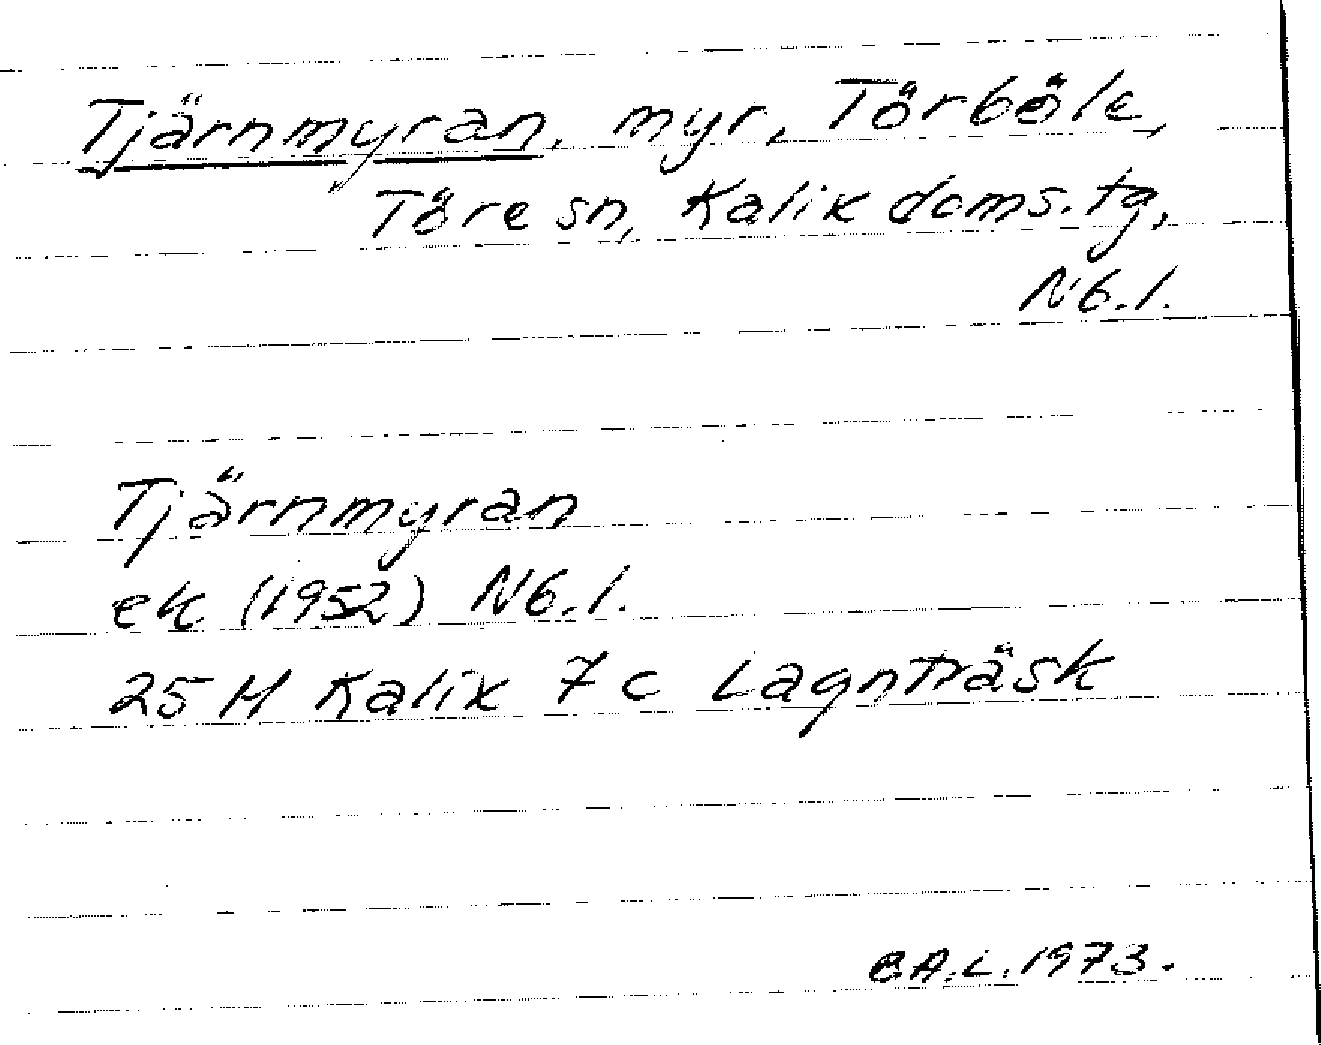 Tjärnmyran, myr, Törböle,
Töre sn, Kalix doms. tg,
Nb. l.
Tjärnmyran
ek (1952) Nb. l.
25 M Kalix 7 c Lagnträsk
B.A.L. 1973.